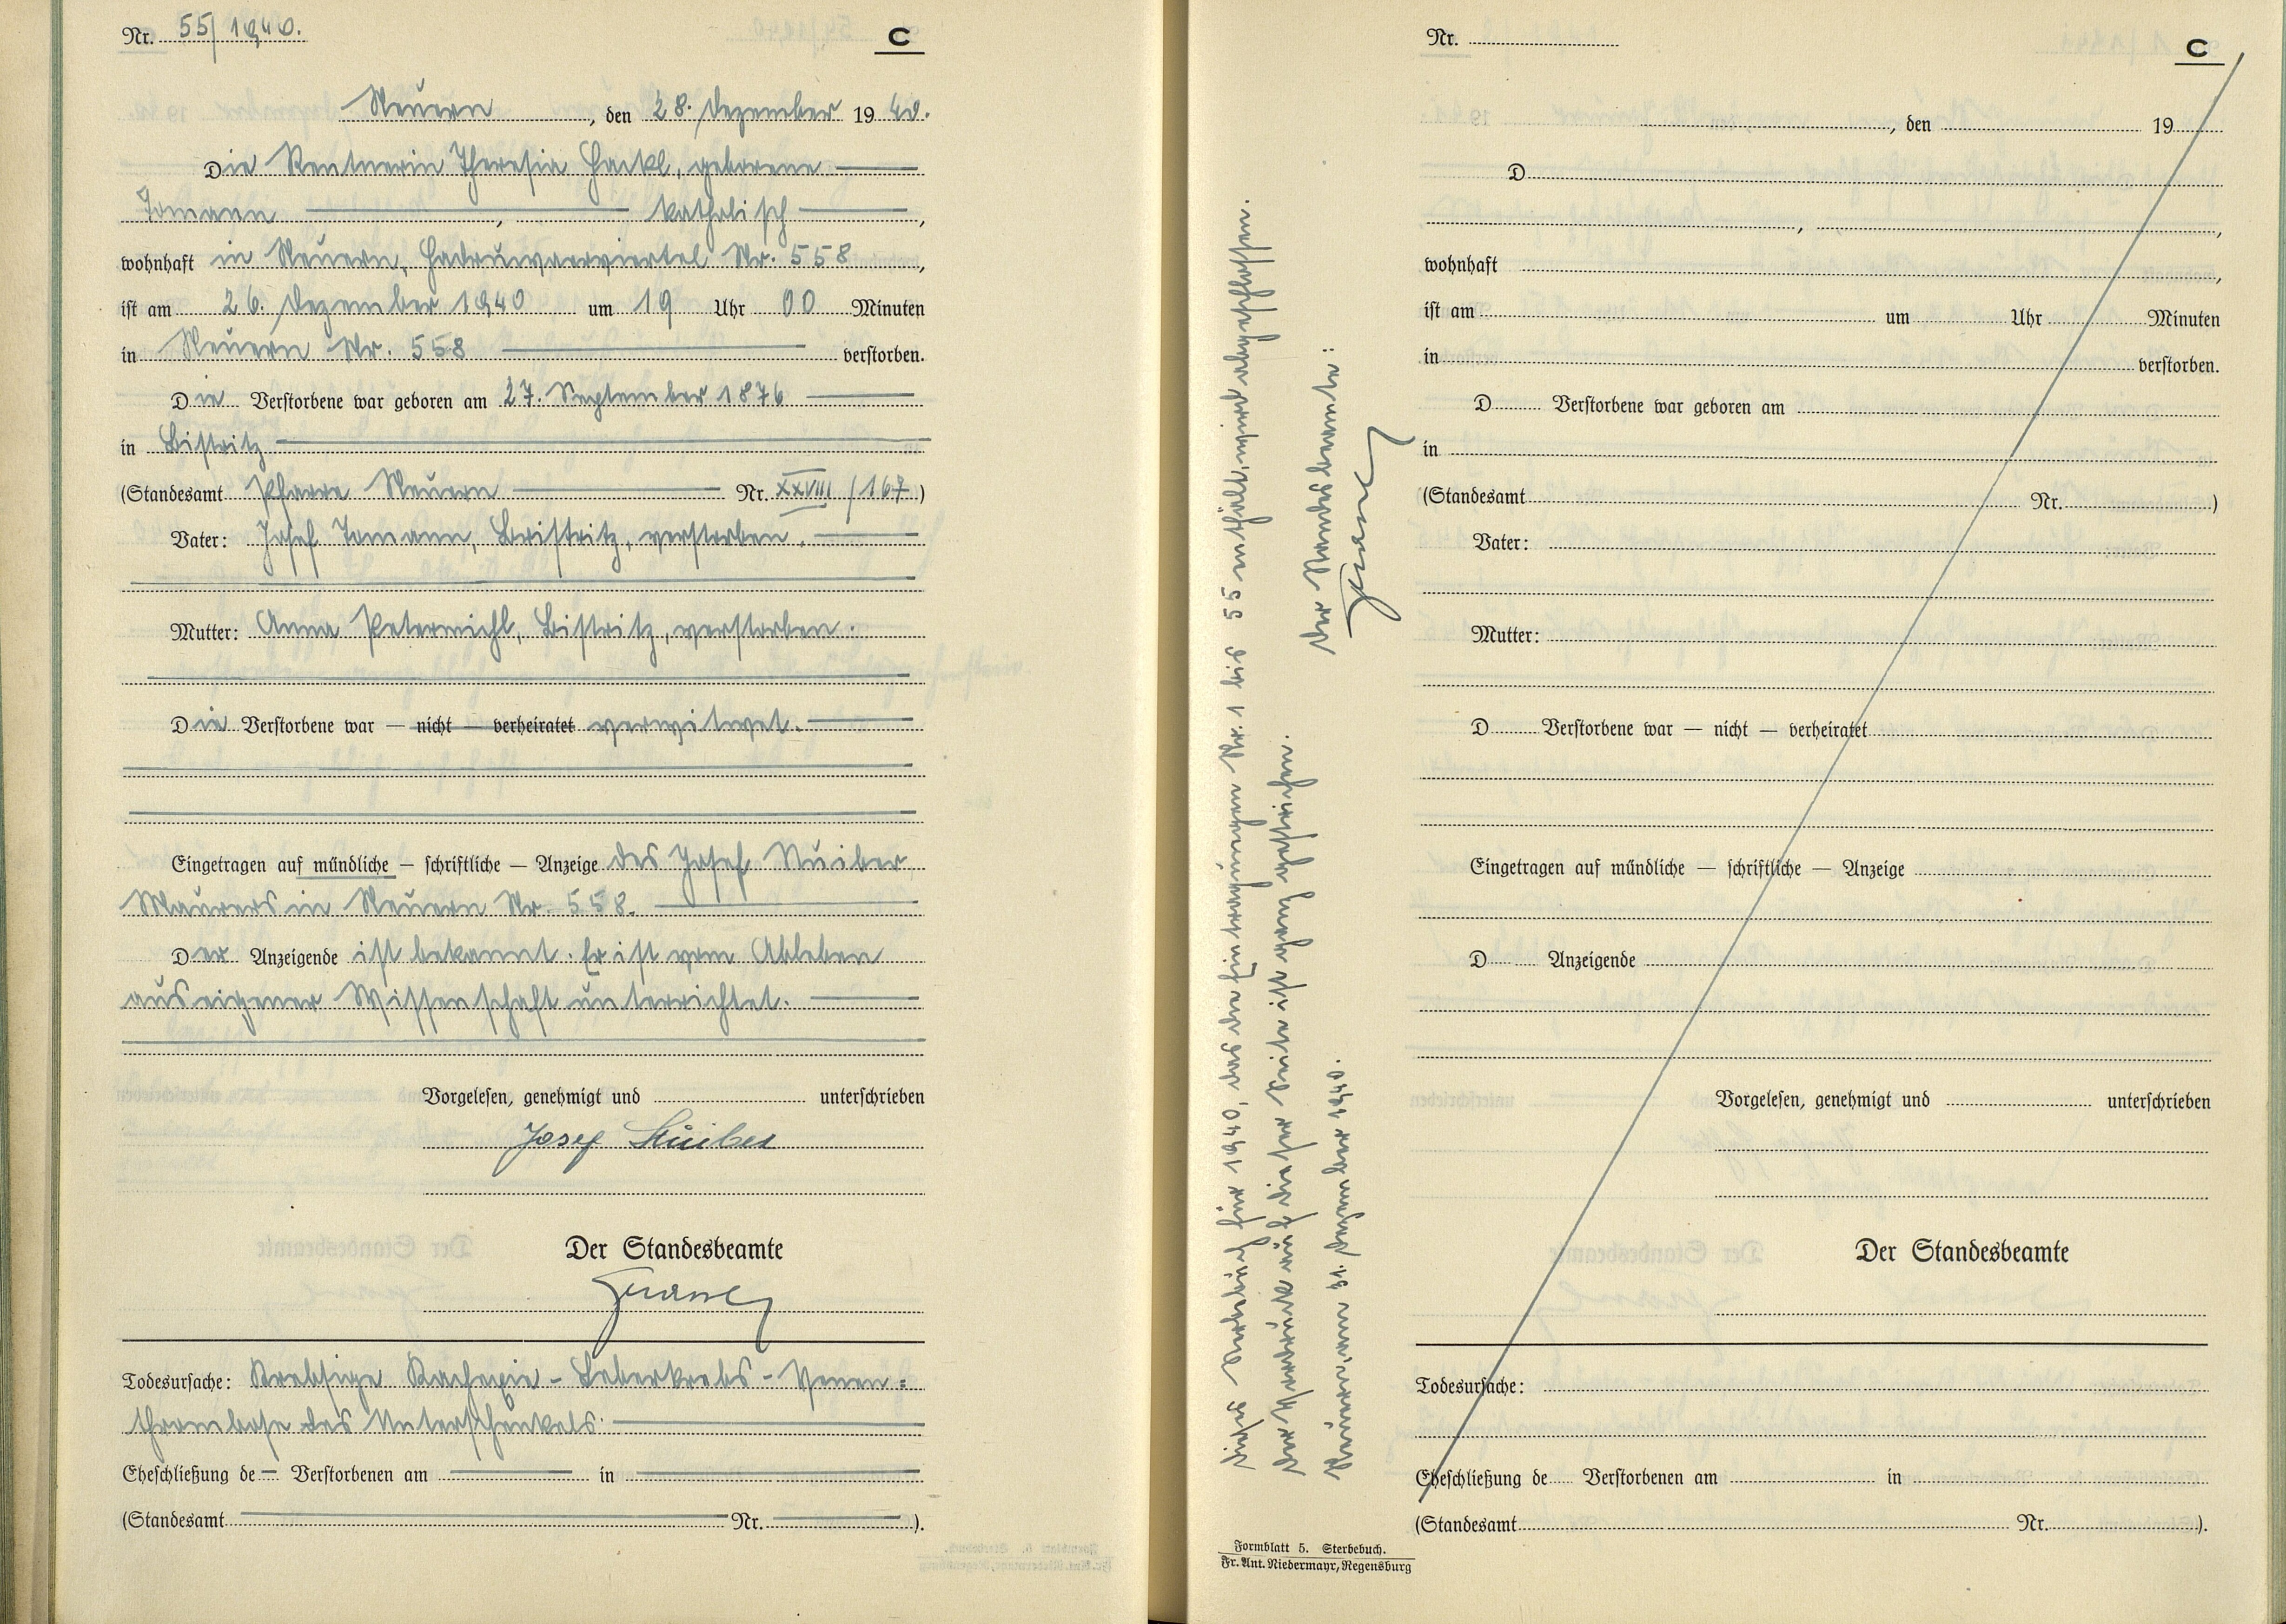 Nr. 55/1940.
C
Neuern, den 28. Dezember 1940.
Die Rentnerin Theresia Hackl, geborene
Tomann, katholisch,
wohnhaft in Neuern, Hadruwaerviertel Nr. 558,
ist am 26. Dezember 1940 um 19 Uhr 00 Minuten
in Neuern Nr. 558 verstorben.
Die Verstorbene war geboren am 27. September 1876
in Bistritz
(Standesamt Pfarre Neuern Nr. XXVIII/167)
Vater: Josef Tomann, Bristritz, verstorben.
Mutter: Anna Petermichl, Bistritz, verstorben.
Die Verstorbene war — nicht — verheiratet verwitwet.
Eingetragen auf mündliche — schriftliche — Anzeige des Josef
Maurers in Neuern Nr. 558.
Der Anzeigende ist bekannt. Er ist vom Ableben
aus eigener Wissenschaft unterrichtet.
Vorgelesen, genehmigt und unterschrieben
Josef
Der Standesbeamte
Todesursache: Krebsige Kachexie - Leberkrebs - Venen=
thrombose des Unterschenkels.
Eheschließung de Verstorbenen am in
(Standesamt Nr. ).
Dieses Sterbebuch für 1940, das die Eintragungen Nr. 1 bis 55 enthält, wurde abgeschlossen.
Der Vordruck auf dieser Seite ist ganz gestrichen.
Neuern, am 31. Dezember 1940.
Der Standesbeamte:
Nr.
C
, den 19
D
,
wohnhaft ,
ist am um Uhr Minuten
in verstorben.
D Verstorbene war geboren am
in
(Standesamt Nr. )
Vater:
Mutter:
D Verstorbene war — nicht — verheiratet
Eingetragen auf mündliche — schriftliche — Anzeige
D Anzeigende
Vorgelesen, genehmigt und unterschrieben
Der Standesbeamte
Todesursache:
Eheschließung de Verstorbenen am in
(Standesamt Nr. ).
Formblatt 5. Sterbebuch.
Fr. Ant. Niedermayr, Regensburg